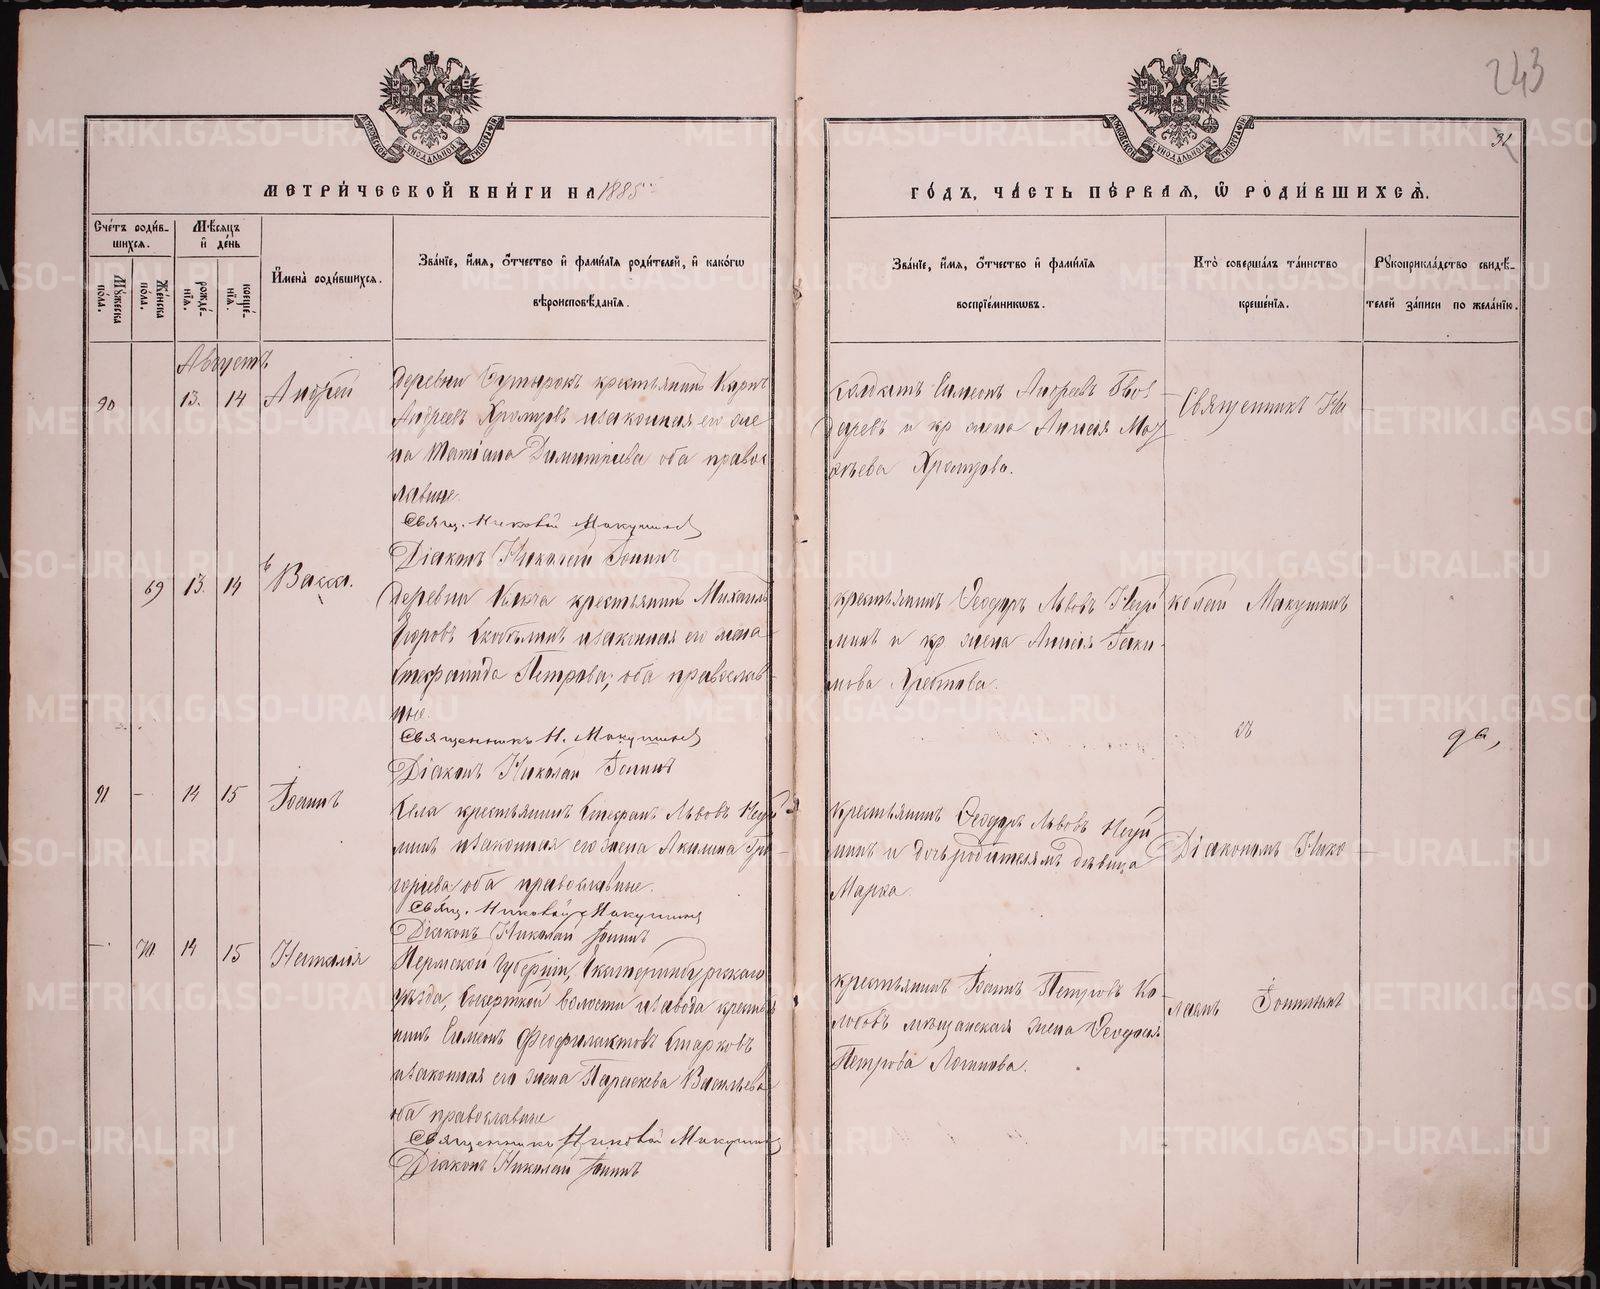 243
31
МОСКОВСКОЙ СѴНОДАЛЬНОЙ ТИПОГРАФІИ
МОСКОВСКОЙ СѴНОДАЛЬНОЙ ТИПОГРАФІИ
МЕТРИ́ЧЕСКОЙ КНИ́ГИ НА 1885
ГО́ДЪ, ЧА́СТЬ ПЕ́РВАЯ, Ѡ РОДИ́ВШИХСЯ.
Сче́тъ роди́в-
шихся.
Мѣ́сяцъ
и҆ де́нь
Мꙋ́жеска по́ла.
Же́нска по́ла.
рожде́-нїя.
креще́-нїя.
И҆мена̀ роди́вшихся.
Зва́нїе, и҆́мя, о҆́тчество и҆ фами́лїя роди́телей, и҆ како́гѡ
вѣроисповѣ́данїя.
Зва́нїе, и҆́мя, о҆́тчество и҆ фами́лїя
воспрїе́мникѡвъ.
Кто̀ соверша́лъ та́инство
креще́нїя.
Рꙋкоприкла́дство свидѣ́-
телей за́писи по жела́нїю.
Августъ
90 13. 14 Андрей
Деревни Бутырокъ крестьянинъ Карпъ
Андреевъ Храмцовъ и законная его же
на Татіана Димитріева оба правос
лавные.
Свящ. Николай Макушинъ
Діаконъ Николай Іонинъ
солдатъ Симеонъ Андреевъ
и кр жена Анна
Храмцова.
Священникъ Ни
69 13. 14 Васса.
Деревни крестьянинъ Михаилъ
Егоровъ и законная его жена
Стефанида Петрова, оба православ
ные.
Священникъ Н. Макушинъ
Діаконъ Николай Іонинъ
крестьянинъ Ѳеодоръ Львовъ Неуй
минъ и кр жена Анна Іаки
мова
колай Макушинъ
съ
да,
91 - 14 15 Іоаннъ
Села крестьянинъ Стефанъ Львовъ Неуй
минъ и законная его жена Акилина Гри
горьева оба православные.
Свящ. Николай Макушинъ
Діаконъ Николай Іонинъ
крестьянинъ Ѳеодоръ Львовъ Неуй
минъ и дочь родителямъ дѣвица
Марѳа
Діакономъ Нико
- 70 14 15 Наталія
Пермской Губерніи, Екатеринбургскаго
уѣзда, Сысертской Волости и завода крестья
нинъ Симеонъ Феофилактовъ Старковъ
и законная его жена Параскева Васильева
оба православные
Священникъ Николай Макушинъ
Діаконъ Николай Іонинъ
крестьянинъ Іоаннъ Петровъ Ко
лобовъ мѣщанская жена Ѳеодосія
Петрова Логинова.
лаемъ Іонинымъ
METRIKI.GASO-URAL.RU